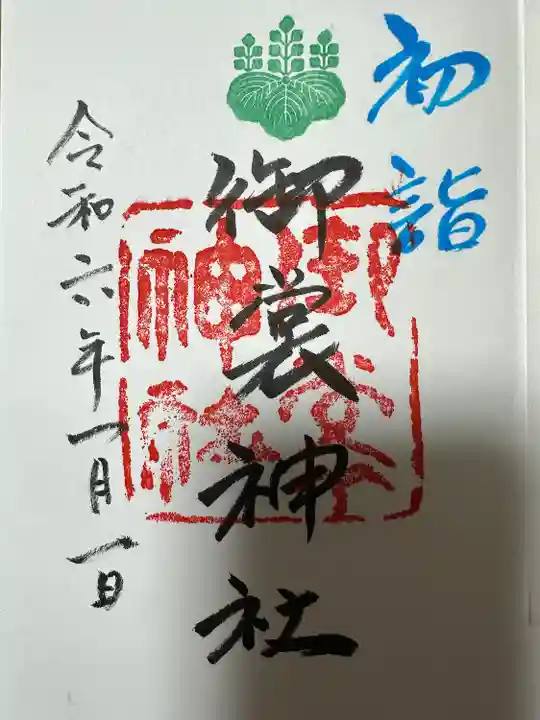 初詣
御裳神社
令和六年一月一日